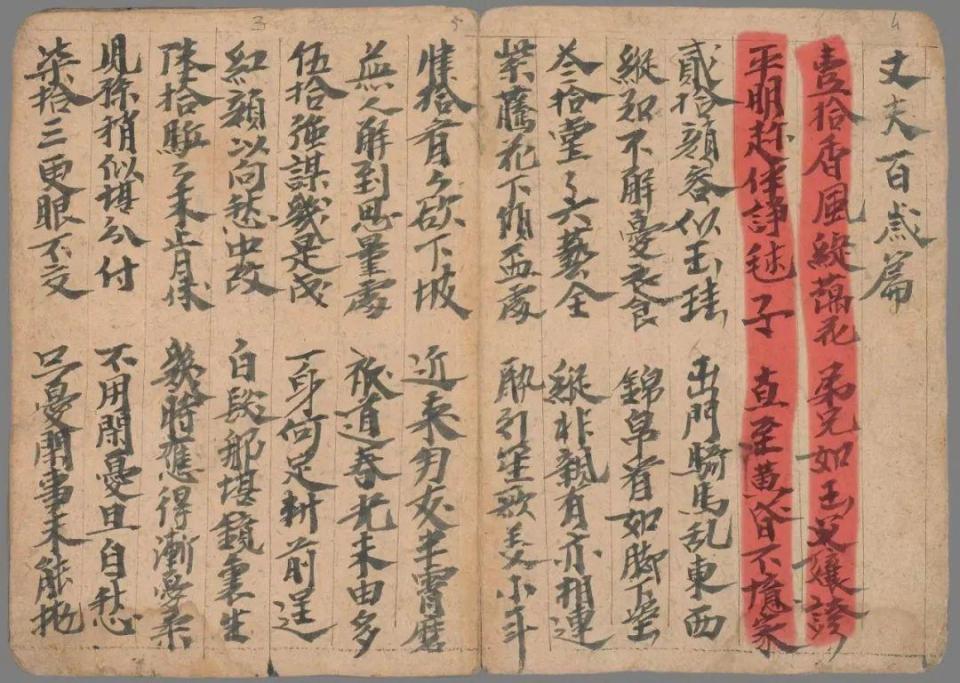 丈夫百歲篇
壹拾香風綻藕花 弟兄如玉父孃誇
平明趂伴諍毬子 直至黃昏不憶家
貳拾顏容似玉珪 出門騎馬乱東西
縱知不解憂衣食 錦帛看如脚下埿
叁拾堂〻六藝全 縱非親有亦相連
紫藤花下傾盃處 醉引笙歌美小年
肆拾看〻欲下坡 近來朋友半霄磨
無人解到思量處 秖道春光未由多
伍拾強謀幾是成 一身何足料前逞
紅顏以向愁中改 白髮那堪鏡裏生
陸拾駈〻未肯休 幾時應得漸憂柔
兒孫稍似堪分付 不用閑憂且自愁
柒拾三更眼不交 只憂閑事未能抛